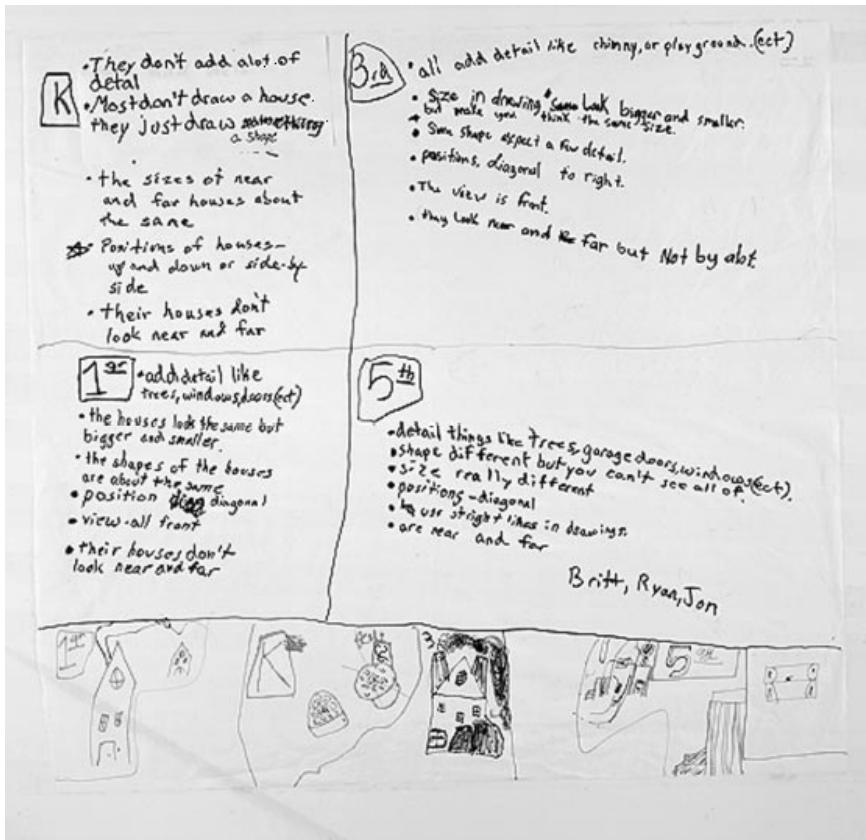 K
• They don't add alot of
detal
• Most don't draw a house.
they just draw
a shape
• the sizes of near
and far houses about
the same
• Positions of houses-
up and down or side-by
side
• their houses don't
look near and far
3rd
• all add detail like chimny, or playground.(ect)
• Size in drawing Some Look bigger and smaller.
but make you think the same size.
• Same shape aspect a few detail.
• positions. diagonal to right.
• The view is front.
• they Look near and far but Not by alot.
1st
• add detail like
trees, windows, doors(ect)
• the houses look the same but
bigger and smaller.
• the shapes of the houses
are about the same
• position diagonal
• view-all front
• their houses don't
look near and far
5th
• detail things like trees, garage doors, windows(ect).
• shape different but you can't see all of.
• size really different
• positions-diagonal
• use stright lines in drawings.
• are near and far
Britt, Ryan, Jon
1st
K
3
5